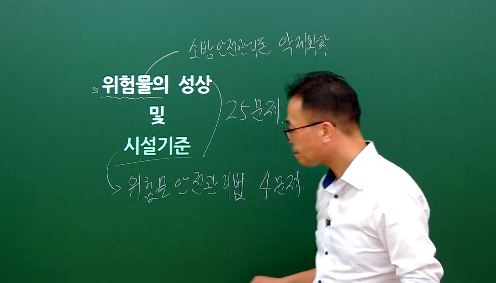 소방안전관리론 약제화학
위험물의 성상
및
25문제
시설기준
위험물안전관리법 4문제